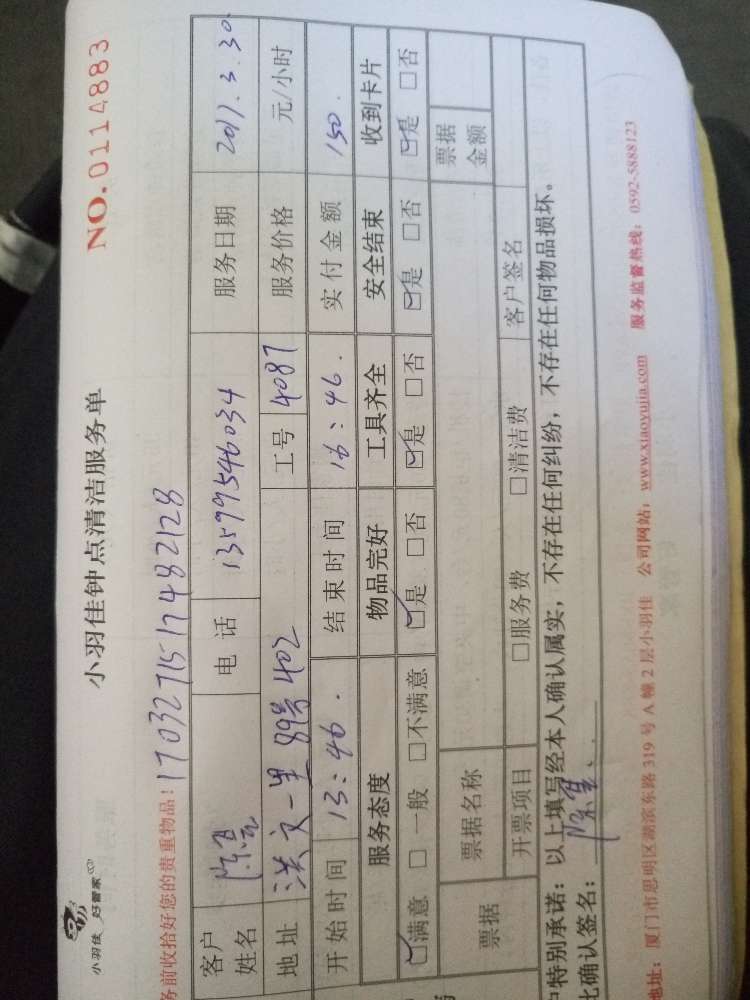 小羽佳 好管家
小羽佳钟点清洁服务单
NO.0114883
务前收拾好您的贵重物品！1703271517482128
客户姓名 电话 13599546034 服务日期 2017.3.30.
地址 洪文一里89号402 工号 4087 服务价格 元/小时
开始时间 13:46. 结束时间 16:46. 实付金额 150.
服务态度 物品完好 工具齐全 安全结束 收到卡片
☑满意 □一般 □不满意 ☑是 □否 ☑是 □否 ☑是 □否 ☑是 □否
票据 票据名称 票据金额
开票项目 □服务费 □清洁费 客户签名
特别承诺：以上填写经本人确认属实，不存在任何纠纷，不存在任何物品损坏。
此确认签名：
地址：厦门市思明区湖滨东路 319 号 A 幢 2 层小羽佳 公司网站：www.xiaoyujia.com 服务监督热线：0592-5888123